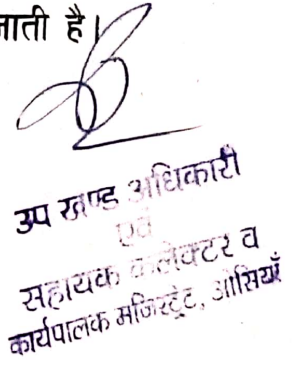 जाती है।
उप खण्ड अधिकारी
एवं
सहायक कलेक्टर व
कार्यपालक मजिस्ट्रेट, ओसियाँ